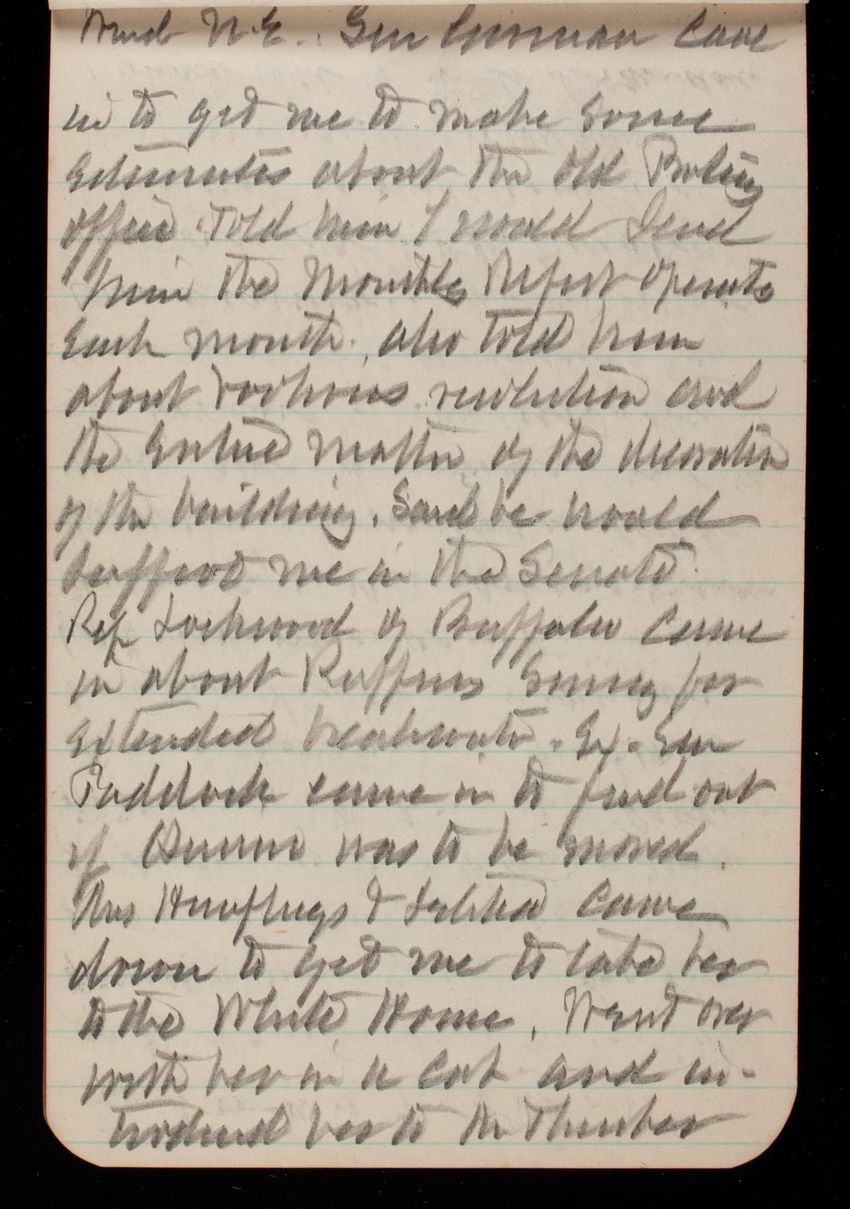 N.E. Gorman came
in to get me to make some
Estimates about the old
office. Told him I would send
him the Monthly Report
Each month. also told him
about Voorhees resolution and
the Entire matter of the decoration
of the building. Said he would
support me in the Senate.
Rep Lockwood of Buffalo came
in about Ruffins Survey for
extended breakwater. Ex. Sen
Paddock came in to find out
if was to be moved.
Mrs Humphreys & came
down to get me to take her
to the White House. Went over
with her in a cab and in-
troduced her to Mr Thurber